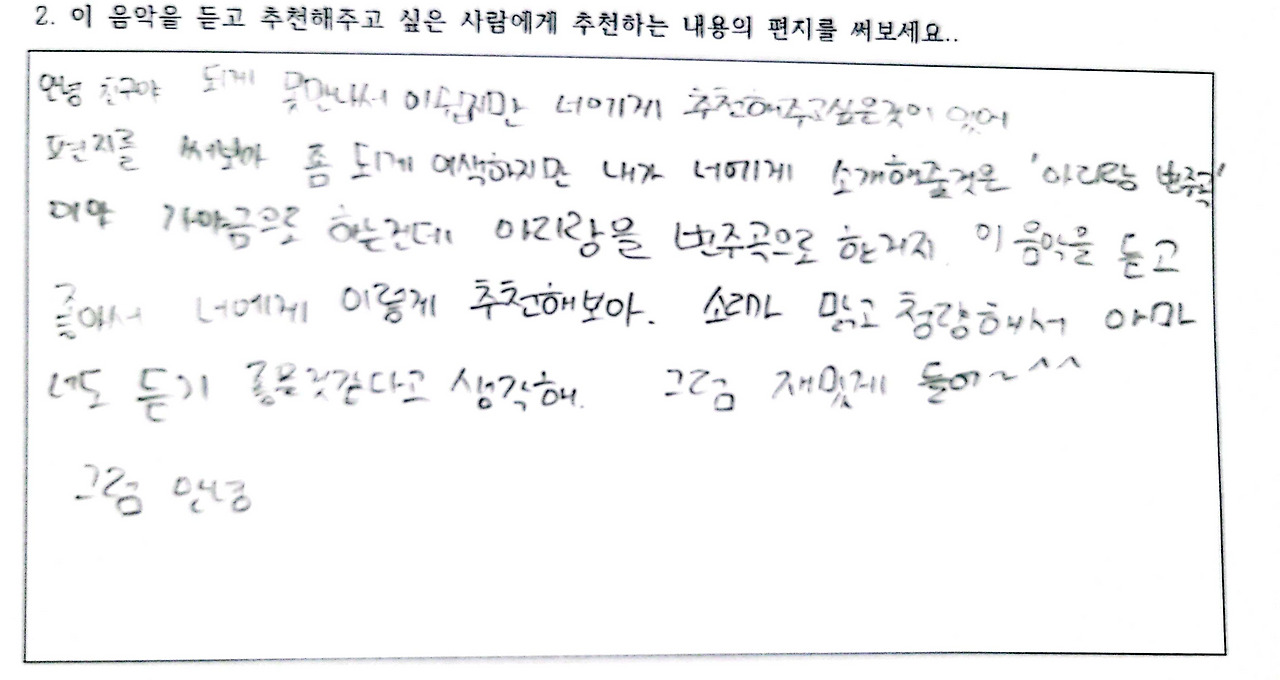 2. 이 음악을 듣고 추천해주고 싶은 사람에게 추천하는 내용의 편지를 써보세요..
안녕 친구야 되게 못만나서 아쉽지만 너에게 추천해주고싶은것이 있어
편지를 써보아 좀 되게 어색하지만 내가 너에게 소개해줄것은 '아리랑 변주곡'
이야 가야금으로 하는건데 아리랑을 변주곡으로 한거지 이 음악을 듣고
좋아서 너에게 이렇게 추천해보아. 소리가 맑고 청량해서 아마
너도 듣기 좋을것같다고 생각해. 그럼 재밌게 들어~ ^^
그럼 안녕